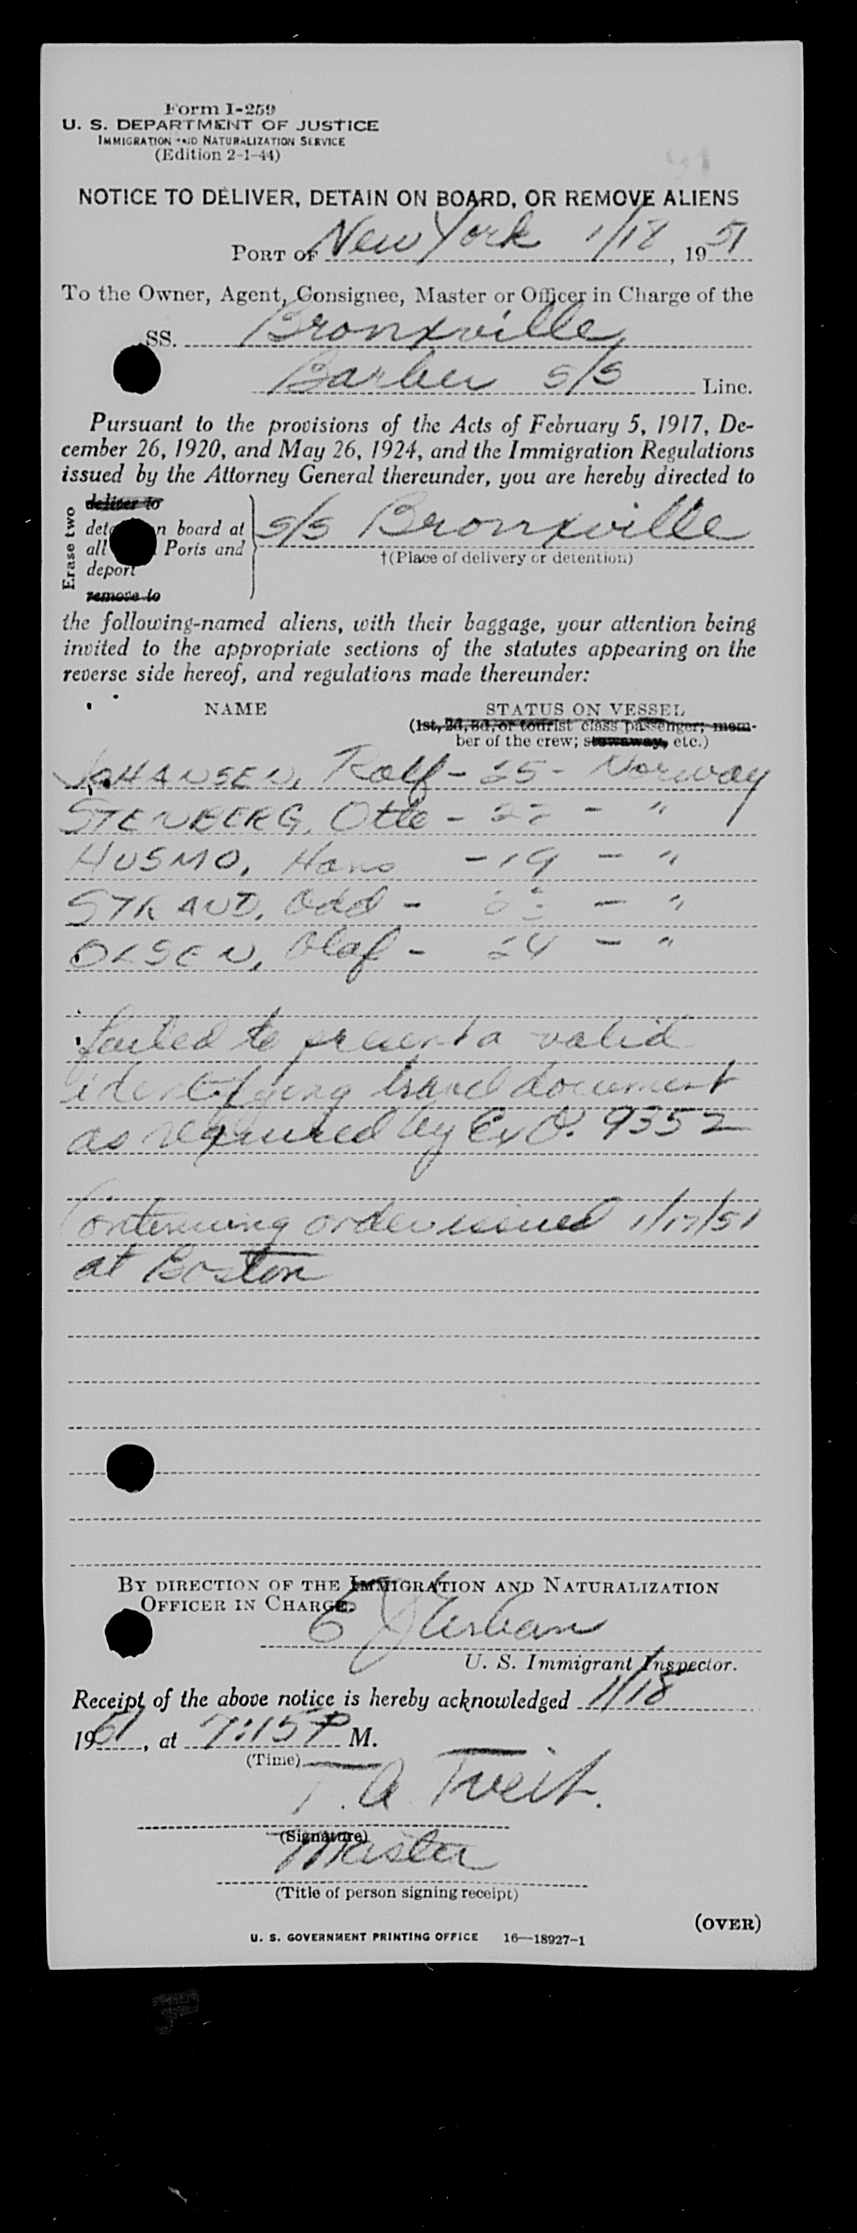 Form I-259
U. S. DEPARTMENT OF JUSTICE
IMMIGRATION AND NATURALIZATION SERVICE
(Edition 2-1-44)
NOTICE TO DELIVER, DETAIN ON BOARD, OR REMOVE ALIENS
PORT OF New York 1/18, 1951
To the Owner, Agent, Consignee, Master or Officer in Charge of the
SS. Bronxville
Barber S/S Line.
Pursuant to the provisions of the Acts of February 5, 1917, De-
cember 26, 1920, and May 26, 1924, and the Immigration Regulations
issued by the Attorney General thereunder, you are hereby directed to
Erase two
deliver to
detain on board at
all Ports and
deport
remove to
S/S Bronxville
†(Place of delivery or detention)
the following-named aliens, with their baggage, your attention being
invited to the appropriate sections of the statutes appearing on the
reverse side hereof, and regulations made thereunder:
NAME STATUS ON VESSEL
(1st, 2d, 3d, or tourist class passenger; mem-
ber of the crew; stowaway, etc.)
JOHANSEN, Rolf - 25 - Norway
STENBERG, Otto - - "
HUSMO, Hans - 19 - "
STRAND, Odd - - "
OLSEN, Olaf - 24 - "
failed to present a valid
identifying travel document
as required by Ex O. 9352
Continuing order issued 1/17/51
at Boston
BY DIRECTION OF THE IMMIGRATION AND NATURALIZATION
OFFICER IN CHARGE.
U. S. Immigrant Inspector.
Receipt of the above notice is hereby acknowledged 1/18
1951, at 7:15 P M.
(Time)
T. A. Tveit.
(Signature)
Master
(Title of person signing receipt)
(OVER)
U. S. GOVERNMENT PRINTING OFFICE 16—18927-1